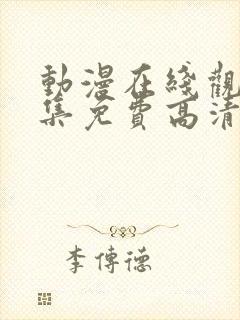 動漫在綫觀
集免費高清
李傳德